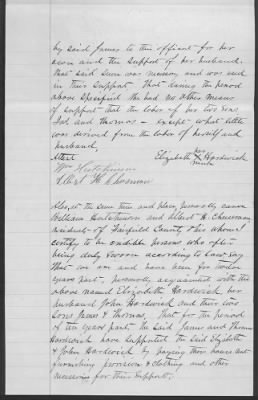 by said James to the affiant for her
own and the support of her husband.
That said sum was necessary and was used
in their support That during the period
above specified she had no other means
of support that the labor of her two sons
Jas. and Thomas — except what little
was derived from the labor of herself and
husband.
Attest Elizabeth her X mark Hardwick
Wm Hutchinson
Albert H. Chessman
Also, at the same time and place, personally came
William Hutchinson and Albert H. Chessman
residents of Fairfield County Ohio whom I
certify to be credible persons who after
being duly sworn according to law say
That we are and have been for twelve
years past, personally acquainted with the
above named Elizabeth Hardwick, her
husband John Hardwick and their two
Sons James & Thomas, That for the period
of ten years past the said James and Thomas
Hardwick have supported the said Elizabeth
& John Hardwick by paying their house rent
furnishing provision & clothing and other
necessaries for their support.